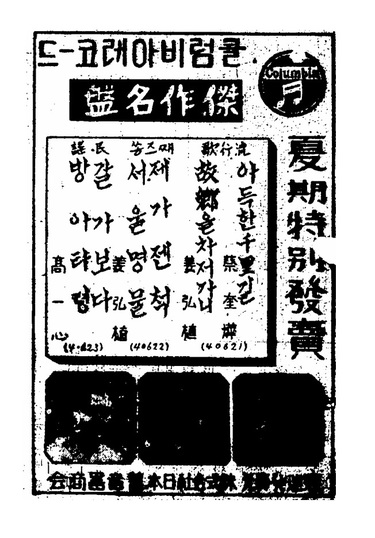 콜럼비아레코-드
Columbia
傑作名盤
夏期特別發賣
流行歌
아득한千里길 蔡奎燁
故鄕을차저가니 姜弘植
(40621)
째즈쏭
제가젠척
서울명물 姜弘植
(40622)
民謠
갈가보다
방아타령 高一心
(40623)
株式會社日本蓄音器商會